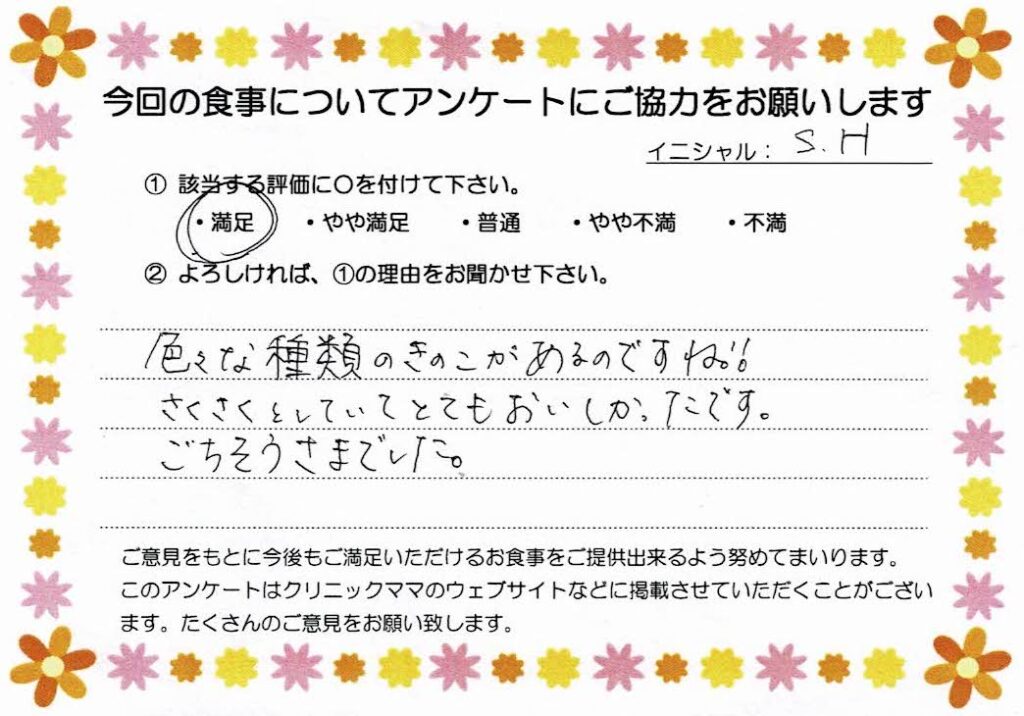 今回の食事についてアンケートにご協力をお願いします
イニシャル： S.H
① 該当する評価に○を付けて下さい。
・満足 ・やや満足 ・普通 ・やや不満 ・不満
② よろしければ、①の理由をお聞かせ下さい。
色々な種類のきのこがあるのですね!!
さくさくとしていてとてもおいしかったです。
ごちそうさまでした。
ご意見をもとに今後もご満足いただけるお食事をご提供出来るよう努めてまいります。
このアンケートはクリニックママのウェブサイトなどに掲載させていただくことがござい
ます。たくさんのご意見をお願い致します。